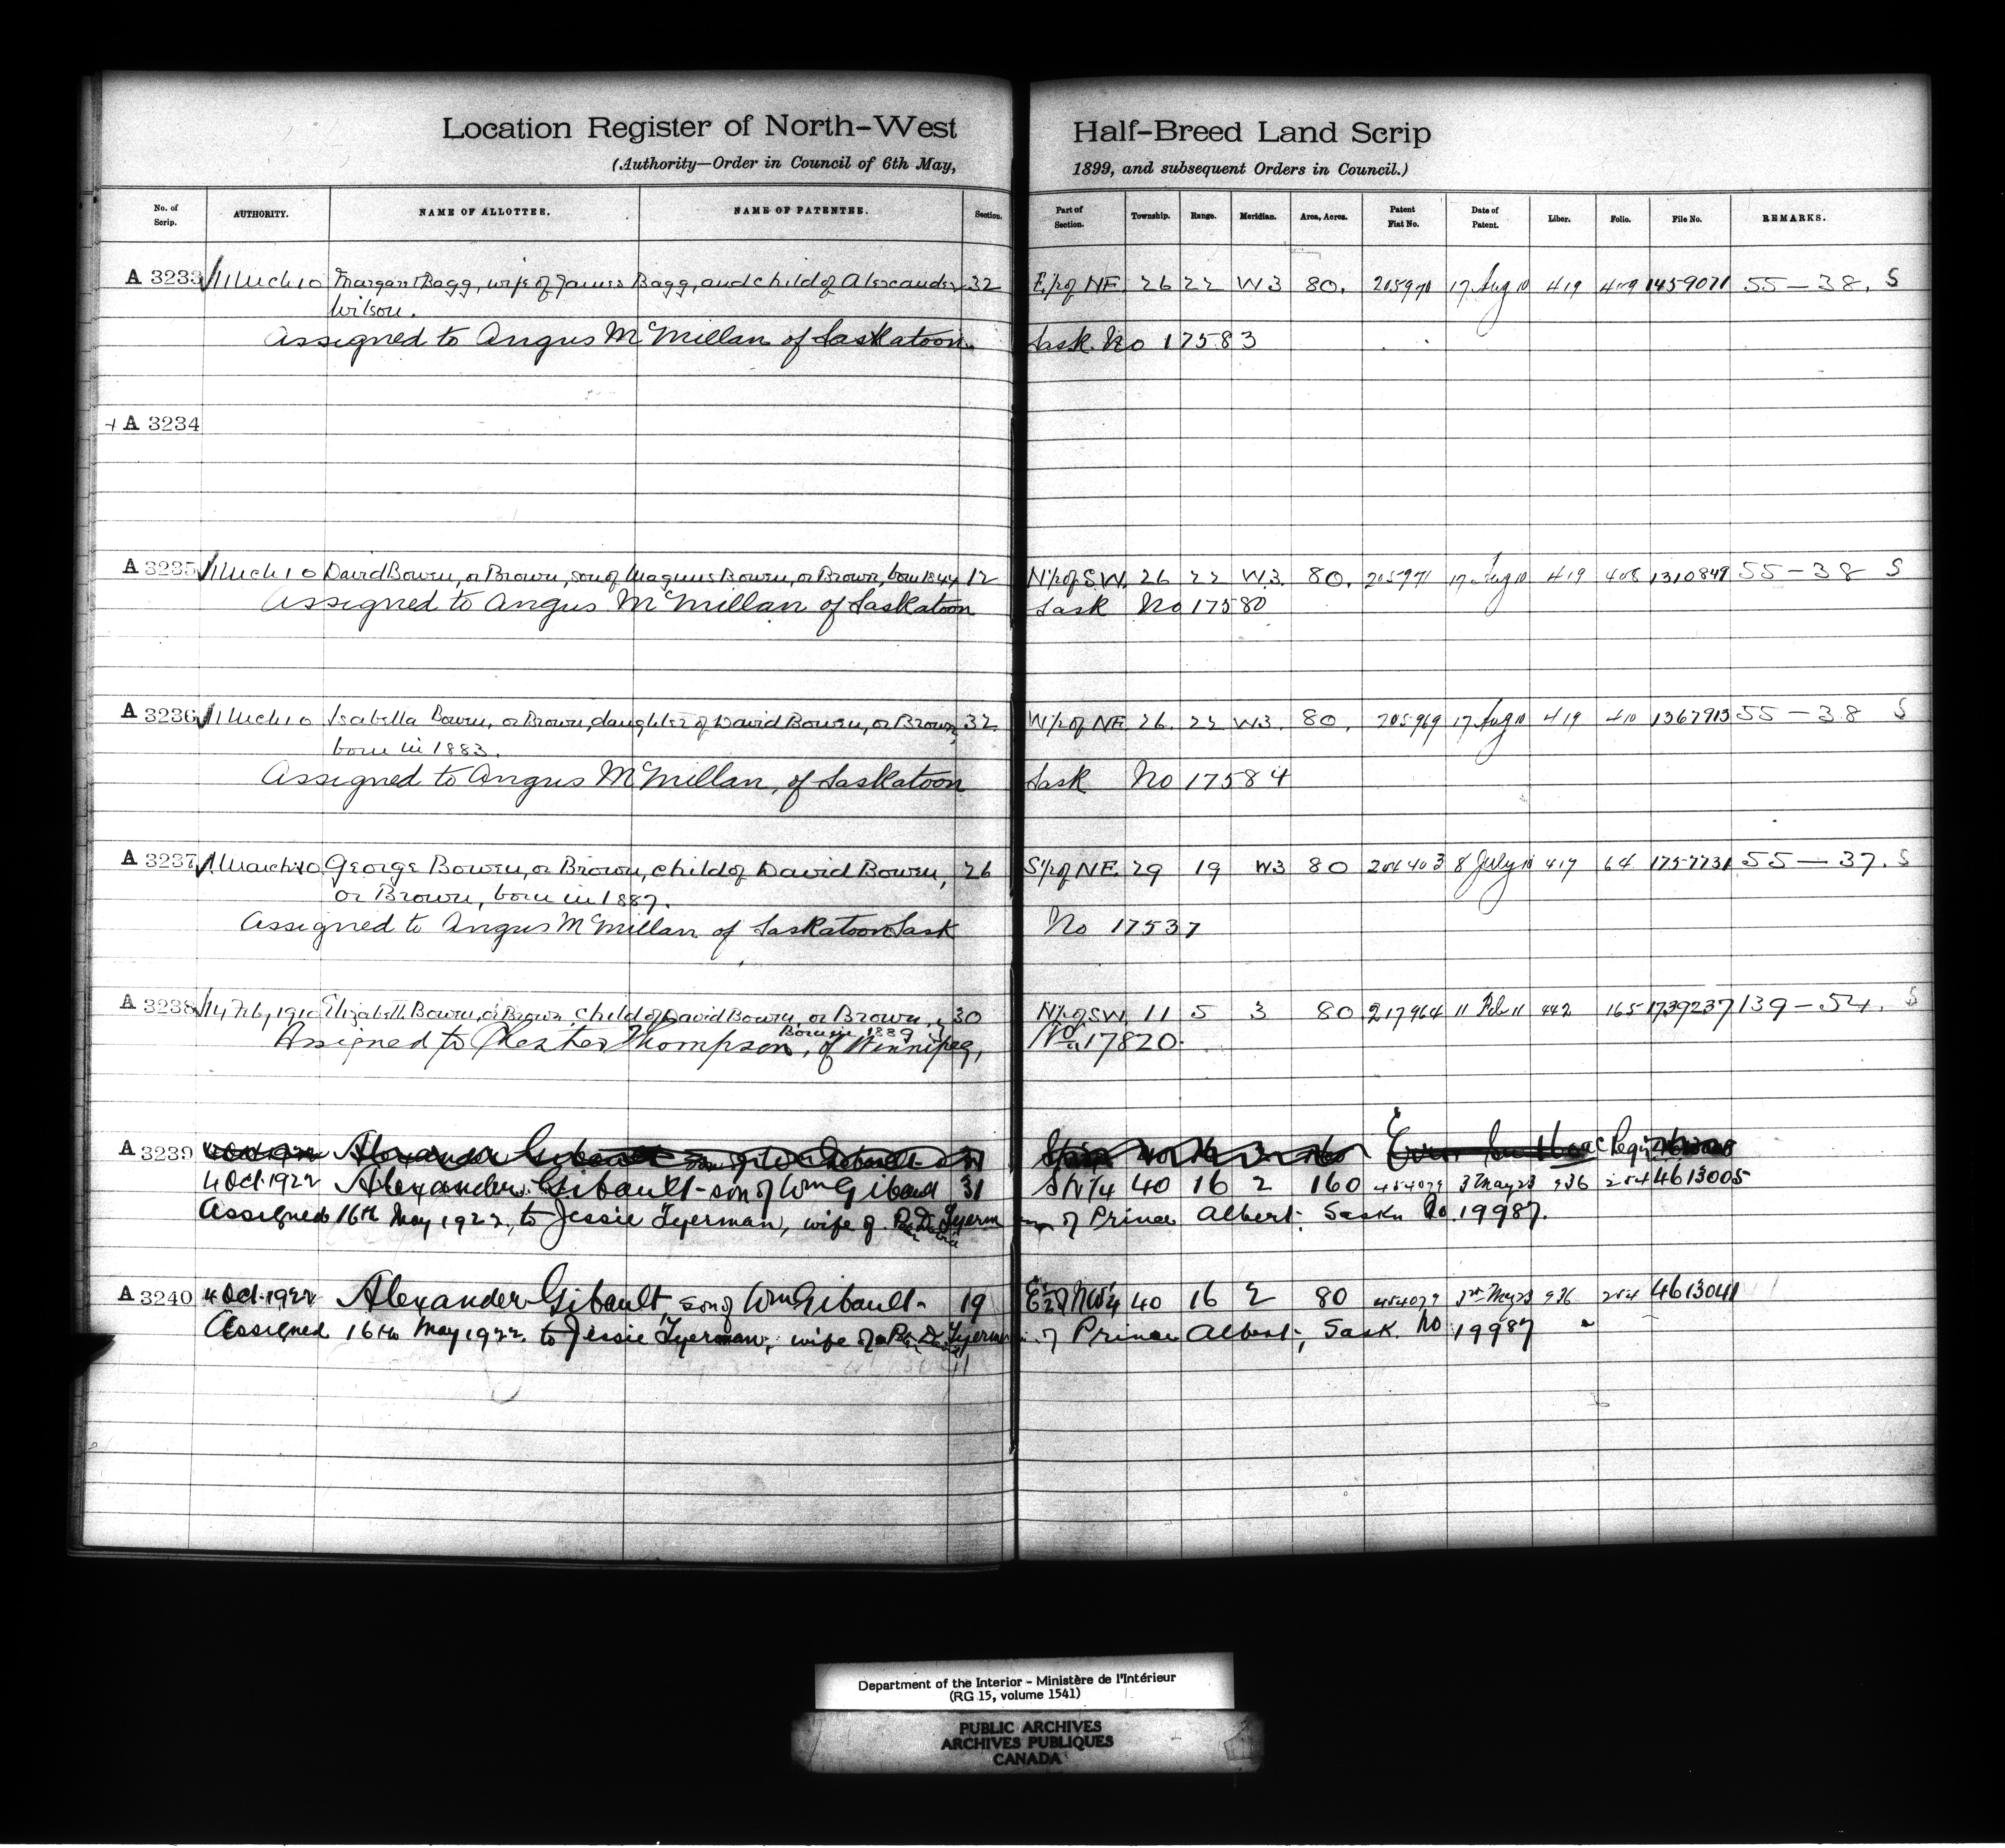 Location Register of North-West Half-Breed Land Scrip
(Authority—Order in Council of 6th May, 1899, and subsequent Orders in Council.)
No. of Scrip. AUTHORITY. NAME OF ALLOTTEE. NAME OF PATENTEE. Section. Part of Section. Township. Range. Meridian. Area, Acres. Patent Fiat No. Date of Patent. Liber. Folio. File No. REMARKS.
A 3233 1 Mch 10 Margaret Bagg, wife of James Bagg, and child of Alexander 32 E½ of NE. 26 22 W3 80. 205970 17 Aug 10 419 409 1459071 55—38. S
Wilson.
Assigned to Angus McMillan of Saskatoon Sask. No 17583
A 3234
A 3235 1 Mch 10 David Bowen, or Brown, son of Magnus Bowen, or Brown, born 1844 12 N½ of S.W. 26 22 W3. 80. 205971 17 Aug 10 419 408 1310849 55—38 S
Assigned to Angus McMillan of Saskatoon Sask No 17580
A 3236 1 Mch 10 Isabella Bowen, or Brown, daughter of David Bowen, or Brown, 32 W½ of NE. 26. 22 W3. 80. 205969 17 Aug 10 419 410 1367913 55—38 S
born in 1883.
Assigned to Angus McMillan, of Saskatoon Sask No 17584
A 3237 1 March 10 George Bowen, or Brown, child of David Bowen, 26 S½ of NE. 29 19 W3 80 206403 8 July 10 417 64 1757731 55—37. S
or Brown, born in 1887.
Assigned to Angus McMillan of Saskatoon Sask No 17537
A 3238 14 Feb, 1910 Elizabeth Bowen, or Brown, child of David Bowen, or Brown, 30 N½ of SW. 11 5 3 80 217964 11 Feb 11 442 165 1739237 139—54. S
Born in 1889
Assigned to Chester Thompson, of Winnipeg, No 17820.
A 3239 Alexander Gibault
4 Oct. 1922 Alexander Gibault - son of Wm Gibault 31 SW¼ 40 16 2 160 454079 3 May 23 936 254 4613005
Assigned 16th May 1922, to Jessie Tyerman, wife of Tyerman of Prince Albert, Sask. No. 19987.
A 3240 4 Oct. 1922 Alexander Gibault, son of Wm Gibault - 19 E½ of NW¼ 40 16 2 80 454079 3rd May 23 936 254 4613041
Assigned 16th May 1922 to Jessie Tyerman, wife of Tyerman of Prince Albert, Sask. No 19987
Department of the Interior - Ministère de l'Intérieur
(RG 15, volume 1541)
PUBLIC ARCHIVES
ARCHIVES PUBLIQUES
CANADA